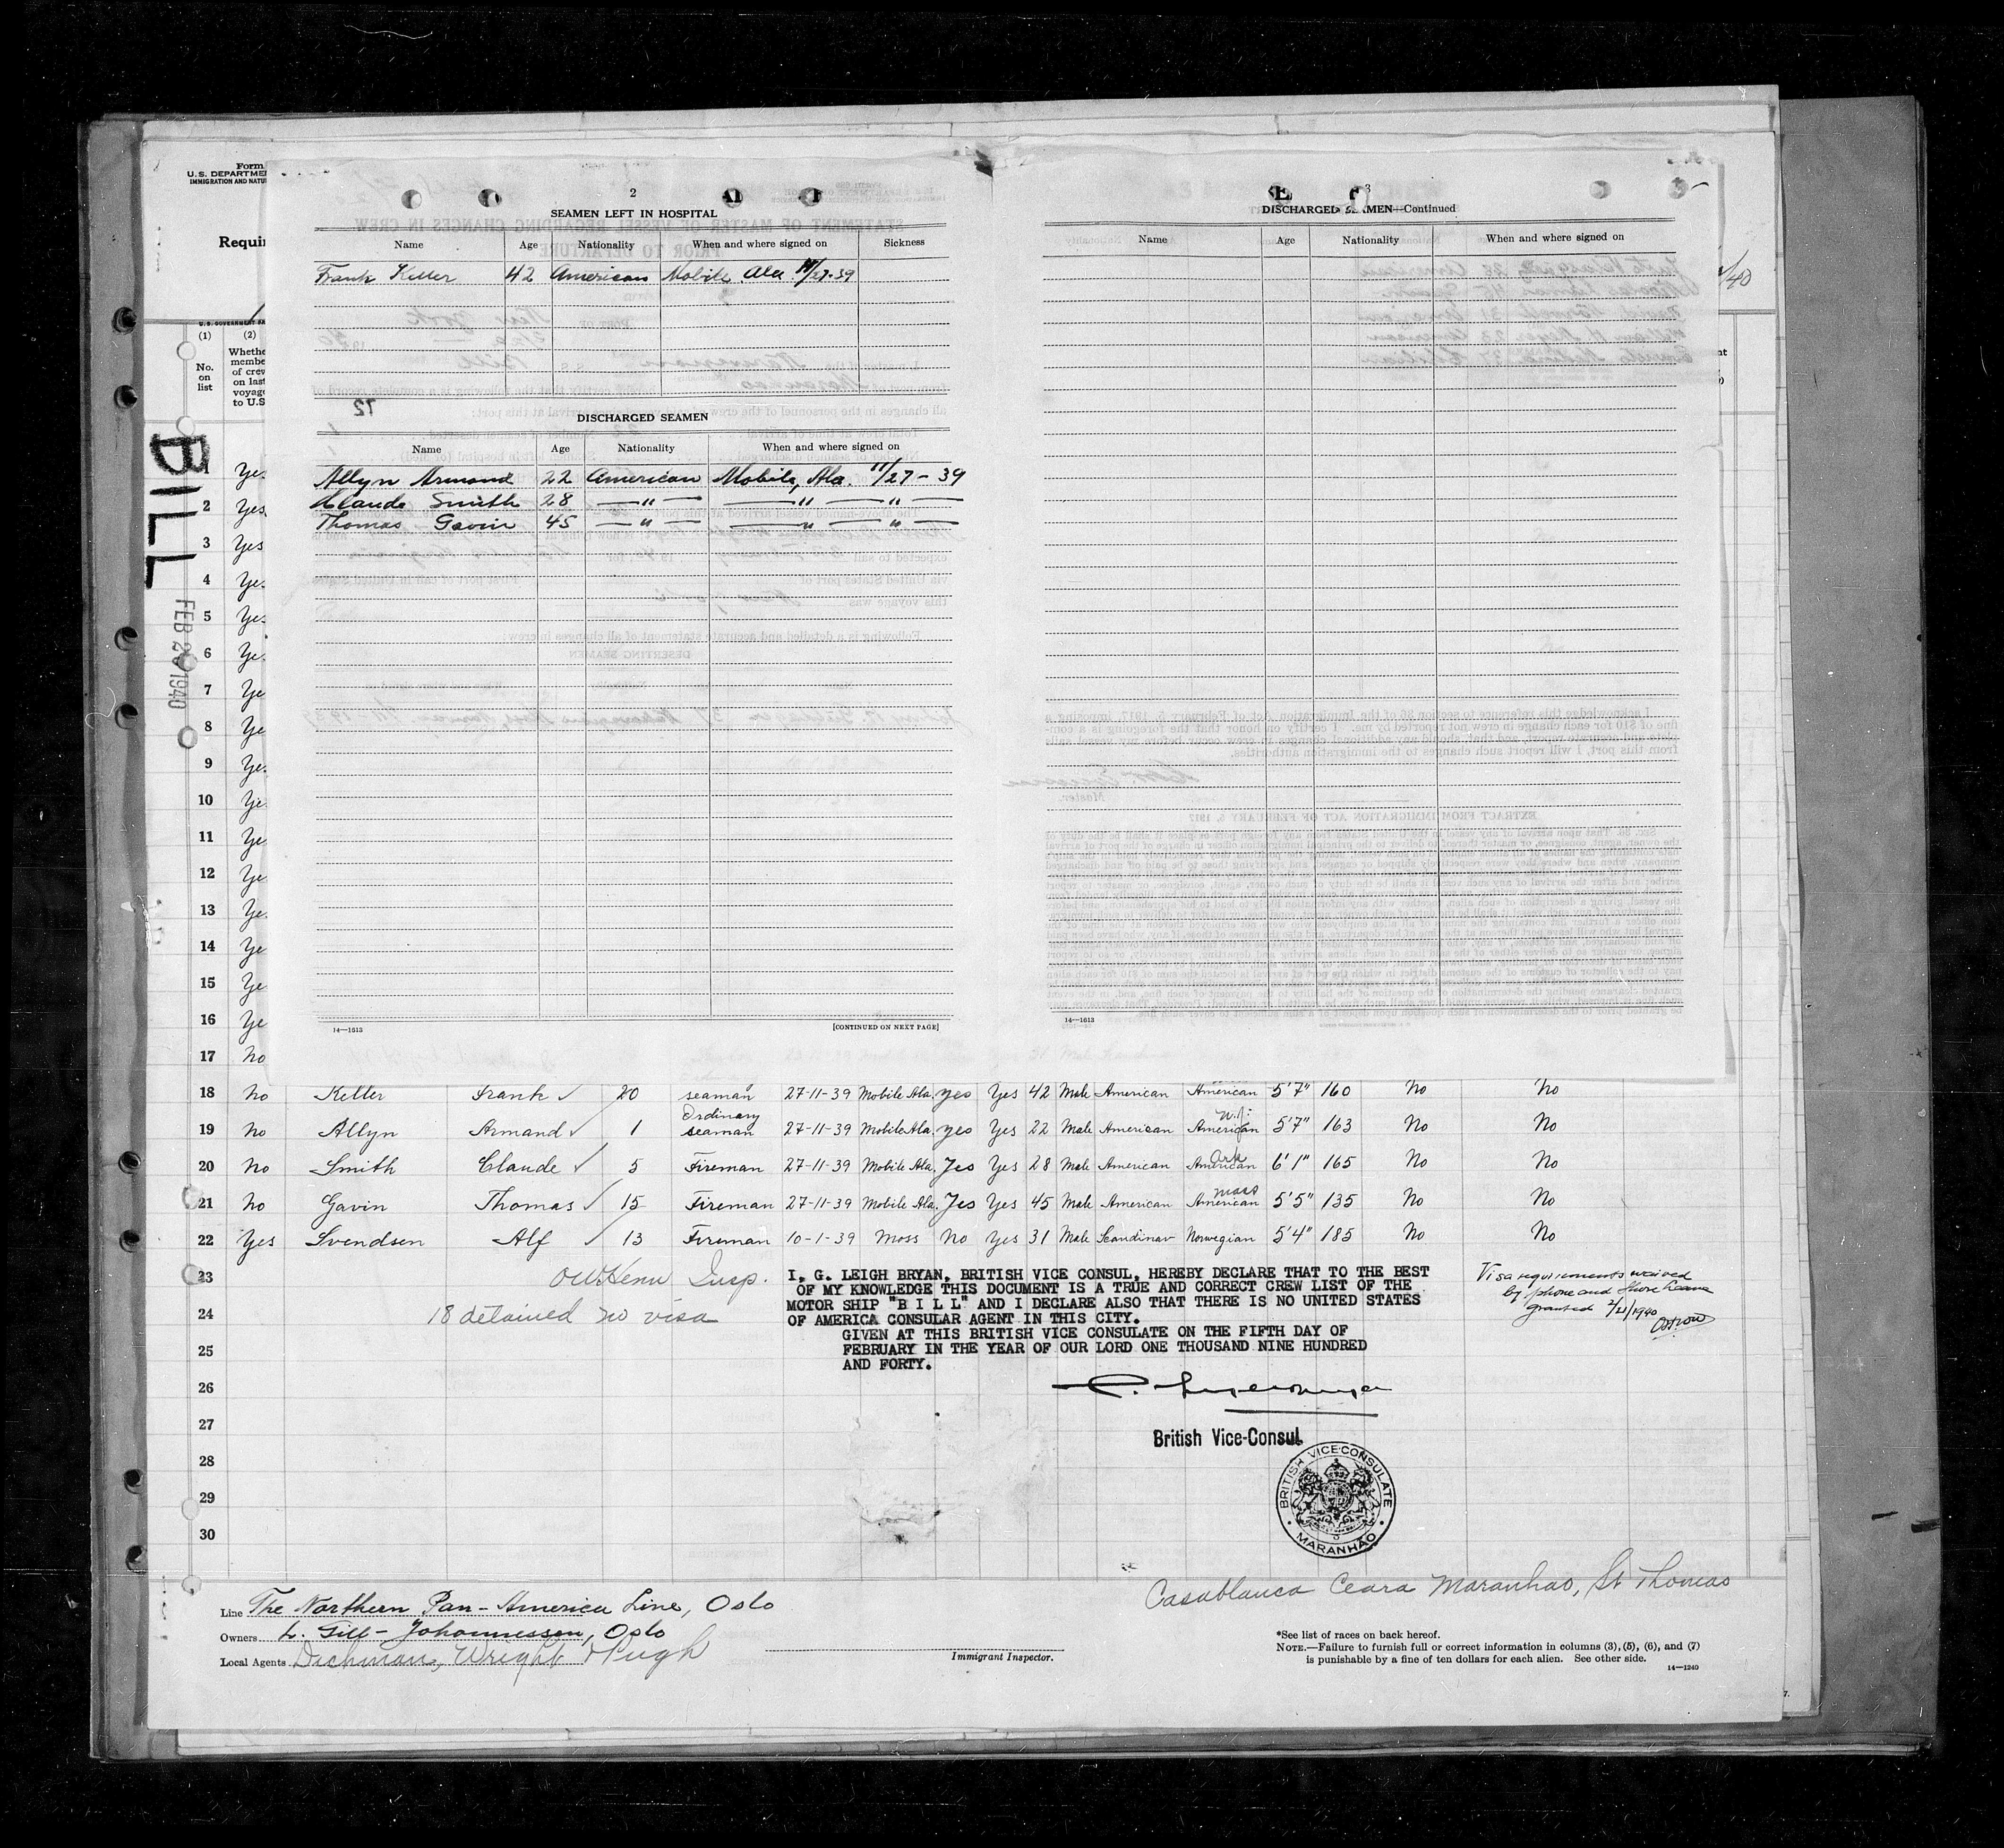 Form
U.S. DEPARTME
IMMIGRATION AND NATU
Requir
U.S. GOVERNMENT
(1) (2)
No.
on
list
Whethe
membe
of crew
on last
voyage
to U.S
BILL
FEB 20 1940
2
SEAMEN LEFT IN HOSPITAL
Name Age Nationality When and where signed on Sickness
Frank Keller 42 American Mobile Ala 11/27-39
DISCHARGED SEAMEN
Name Age Nationality When and where signed on
Allyn Armand 22 American Mobile, Ala. 11/27-39
Claude Smith 28 — " — — " — " —
Thomas Gavin 45 — " — — " — " —
14—1613 [CONTINUED ON NEXT PAGE]
3
DISCHARGED SEAMEN—Continued
Name Age Nationality When and where signed on
14—1613
1 Yes
2 Yes
3 Yes
4 Ye
5 Yes
6 Ye
7 Ye
8 Ye
9 Ye
10 Ye
11 Ye
12 Ye
13 Ye
14 Ye
15 Ye
16 Ye
17 No
18 No Keller Frank ✓ 20 seaman 27-11-39 Mobile Ala. yes Yes 42 Male American American 5'7" 160 No No
19 No Allyn Armand ✓ 1 Ordinary seaman 27-11-39 Mobile Ala. yes Yes 22 Male American N.J. American 5'7" 163 No No
20 No Smith Claude ✓ 5 Fireman 27-11-39 Mobile Ala. Yes Yes 28 Male American Ark American 6'1" 165 No No
21 No Gavin Thomas ✓ 15 Fireman 27-11-39 Mobile Ala. Yes Yes 45 Male American Mass American 5'5" 135 No No
22 Yes Svendsen Alf ✓ 13 Fireman 10-1-39 Moss No Yes 31 Male Scandinav Norwegian 5'4" 185 No No
23
24
25
26
27
28
29
30
Insp.
18 detained no visa
I, G. LEIGH BRYAN, BRITISH VICE CONSUL, HEREBY DECLARE THAT TO THE BEST
OF MY KNOWLEDGE THIS DOCUMENT IS A TRUE AND CORRECT CREW LIST OF THE
MOTOR SHIP "B I L L" AND I DECLARE ALSO THAT THERE IS NO UNITED STATES
OF AMERICA CONSULAR AGENT IN THIS CITY.
GIVEN AT THIS BRITISH VICE CONSULATE ON THE FIFTH DAY OF
FEBRUARY IN THE YEAR OF OUR LORD ONE THOUSAND NINE HUNDRED
AND FORTY.
British Vice-Consul
BRITISH VICE-CONSULATE
MARANHÃO
Visa requirements waived
by phone and Shore Leave
granted 2/21/1940
Casablanca Ceara Maranhao, St Thomas
Line The Northern Pan-America Line, Oslo
Owners L. Gill-Johannessen, Oslo
Local Agents Dichmann, Wright & Pugh
Immigrant Inspector.
*See list of races on back hereof.
NOTE.—Failure to furnish full or correct information in columns (3), (5), (6), and (7)
is punishable by a fine of ten dollars for each alien. See other side.
14—1240